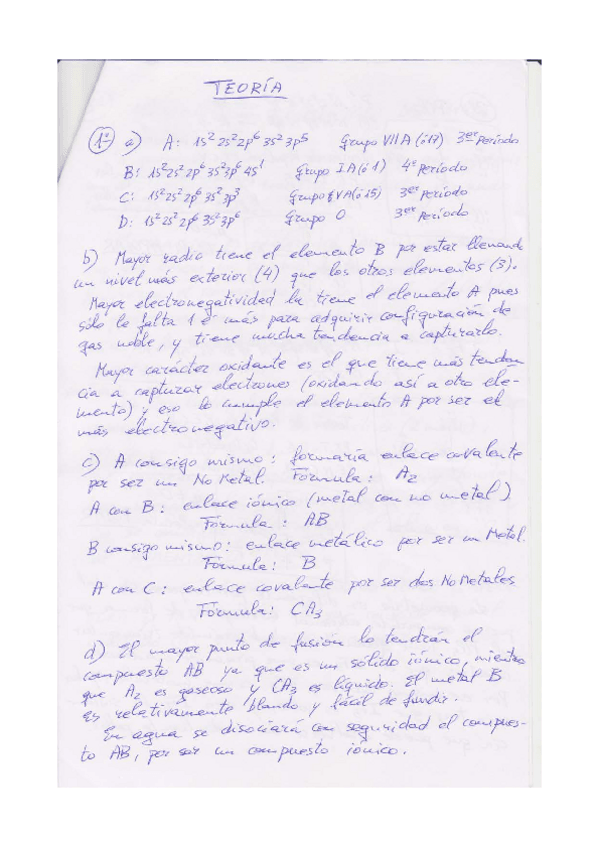 TEORÍA
1º a) A: 1s² 2s² 2p⁶ 3s² 3p⁵ Grupo VIIA (ó 17) 3er Período
B: 1s² 2s² 2p⁶ 3s² 3p⁶ 4s¹ Grupo IA (ó 1) 4º Período
C: 1s² 2s² 2p⁶ 3s² 3p³ Grupo VA (ó 15) 3er Período
D: 1s² 2s² 2p⁶ 3s² 3p⁶ Grupo 0 3er Período
b) Mayor radio tiene el elemento B por estar llenando
un nivel más exterior (4) que los otros elementos (3).
Mayor electronegatividad la tiene el elemento A pues
sólo le falta 1 e⁻ más para adquirir configuración de
gas noble, y tiene mucha tendencia a capturarlo.
Mayor carácter oxidante es el que tiene más tenden-
cia a capturar electrones (oxidando así a otro ele-
mento) y eso lo cumple el elemento A por ser el
más electronegativo.
c) A consigo mismo: formaría enlace covalente
por ser un No Metal. Fórmula: A₂
A con B: enlace iónico (metal con no metal)
Fórmula: AB
B consigo mismo: enlace metálico por ser un Metal.
Fórmula: B
A con C: enlace covalente por ser dos No Metales
Fórmula: CA₃
d) El mayor punto de fusión lo tendrán el
compuesto AB ya que es un sólido iónico, mientras
que A₂ es gaseoso y CA₃ es líquido. El metal B
es relativamente blando y fácil de fundir.
En agua se disociará con seguridad el compues-
to AB, por ser un compuesto iónico.